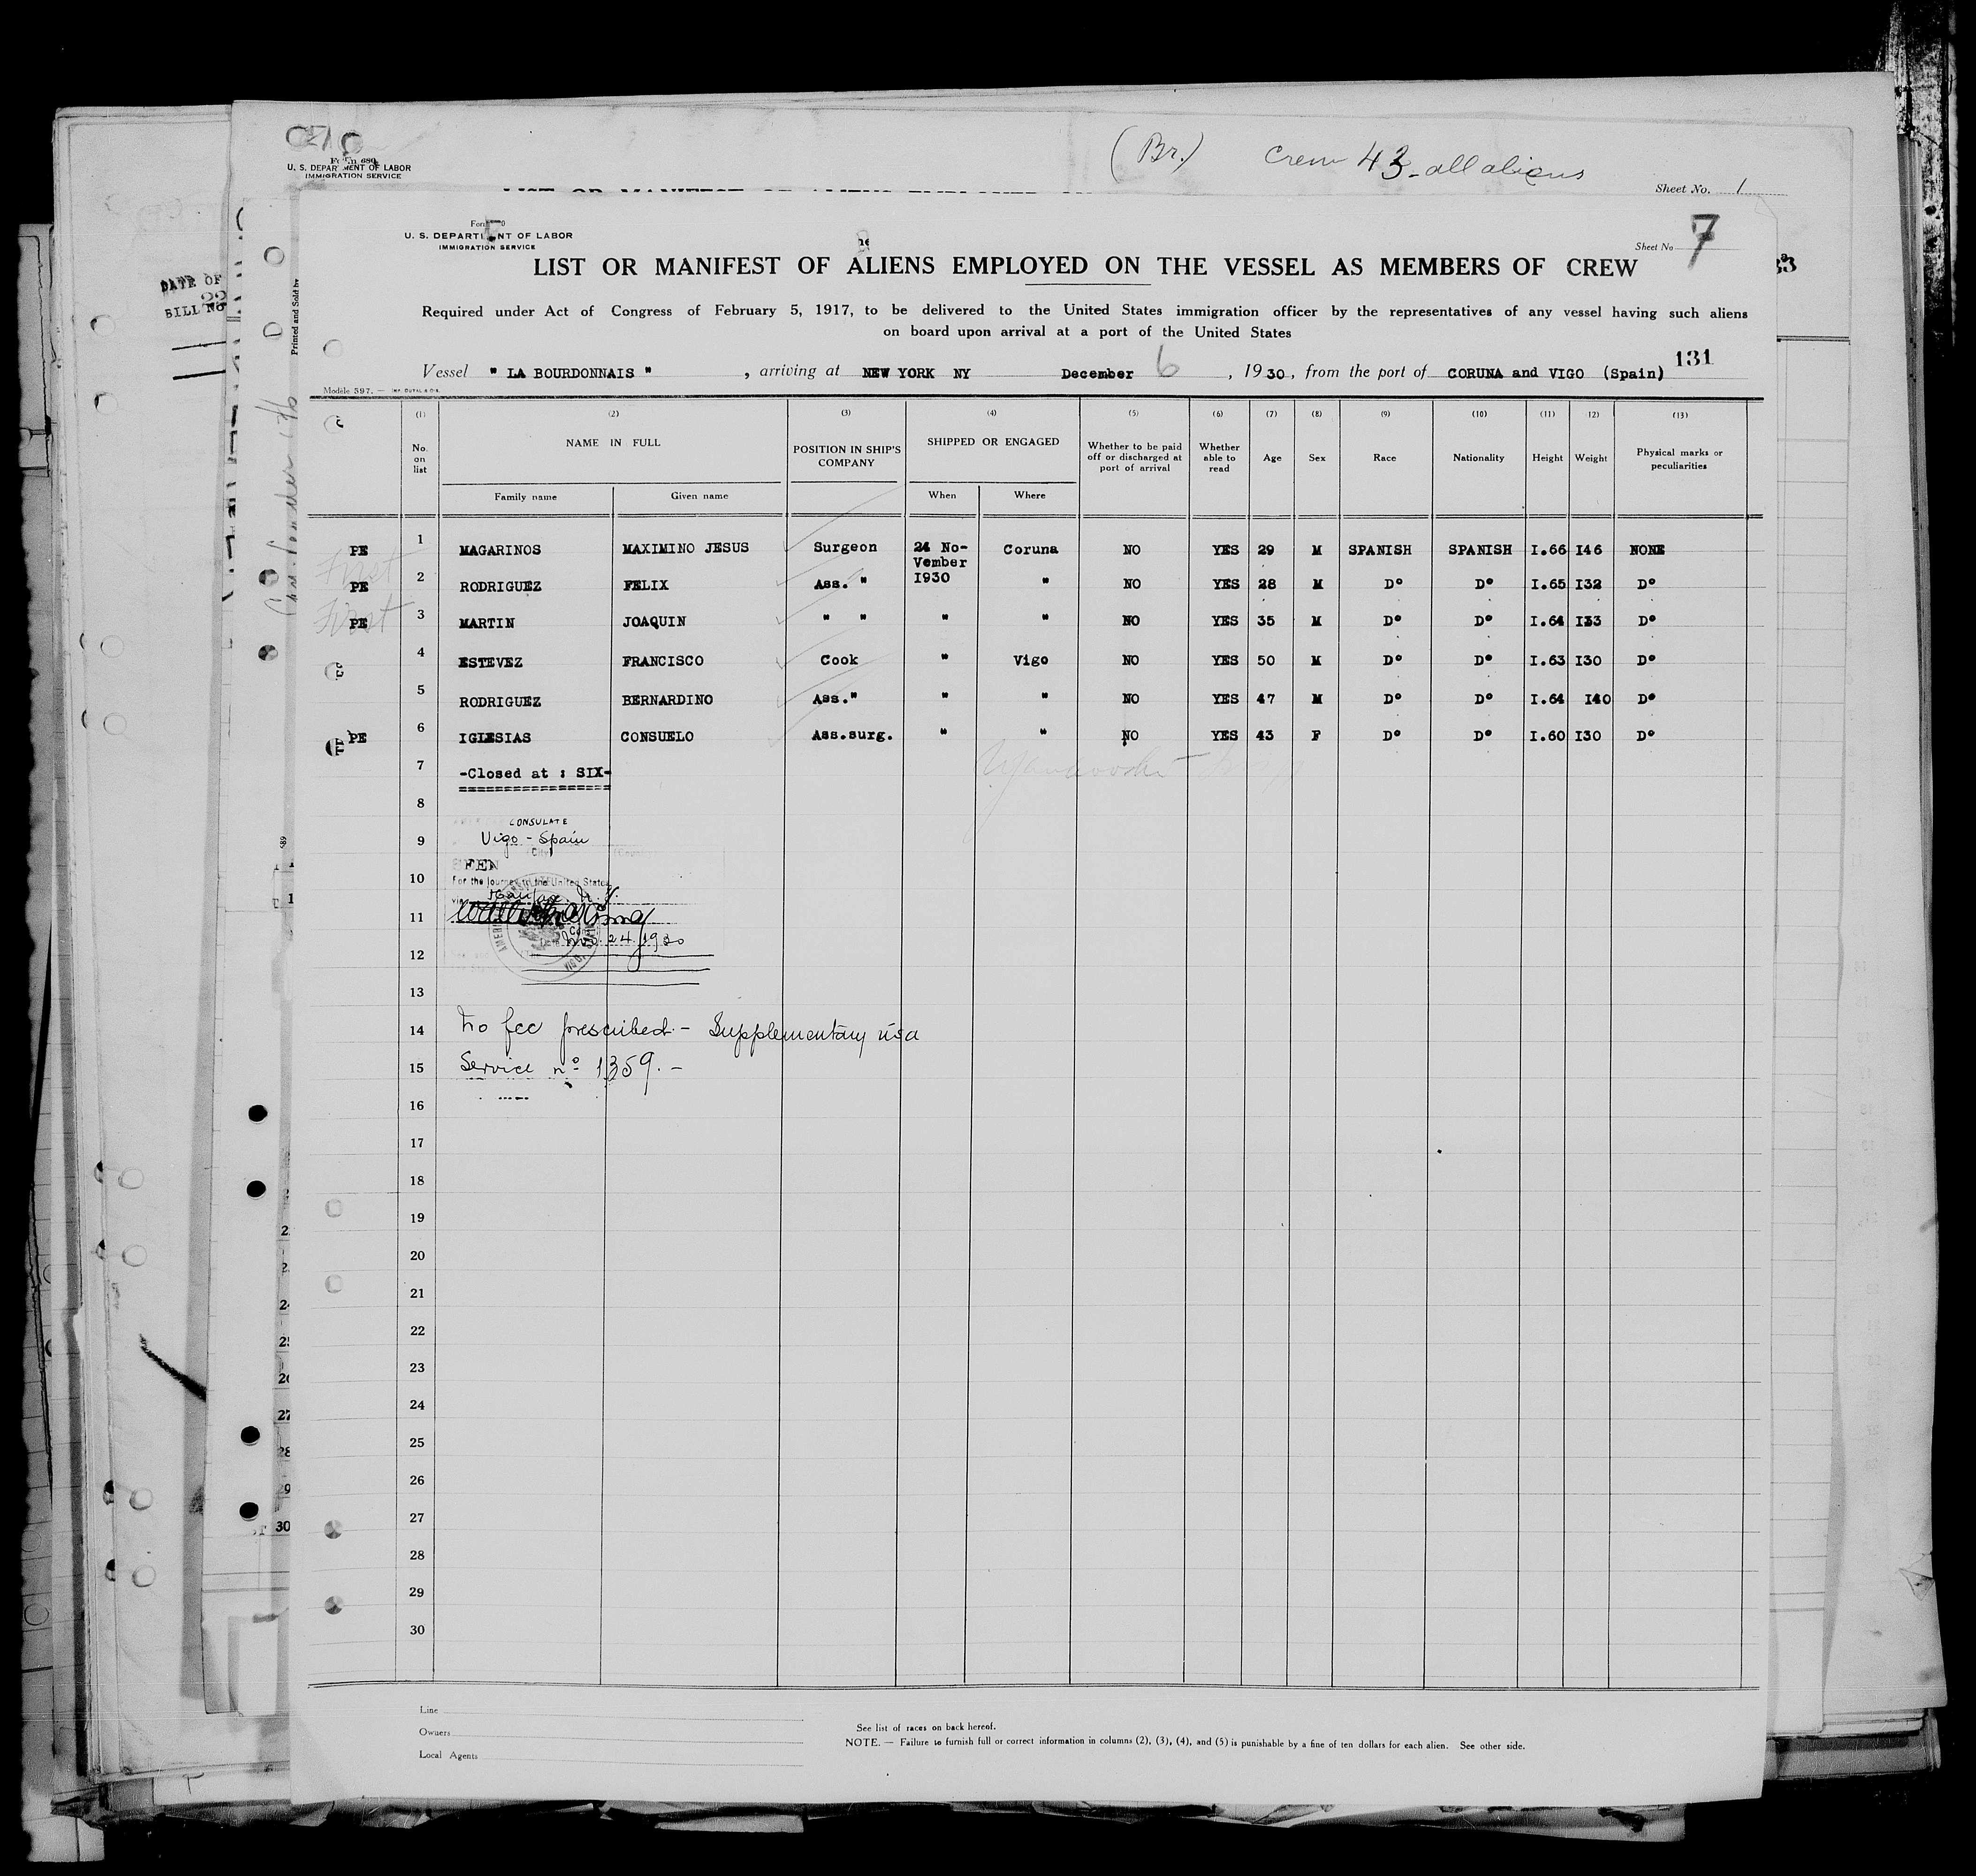 (Br.) Crew 43 - all aliens
U. S. DEPARTMENT OF LABOR
IMMIGRATION SERVICE
Sheet No. 1
DATE OF
BILL No
Printed and Sold by
U. S. DEPARTMENT OF LABOR
IMMIGRATION SERVICE
Sheet No 7
LIST OR MANIFEST OF ALIENS EMPLOYED ON THE VESSEL AS MEMBERS OF CREW
Required under Act of Congress of February 5, 1917, to be delivered to the United States immigration officer by the representatives of any vessel having such aliens
on board upon arrival at a port of the United States
131
Vessel " LA BOURDONNAIS " , arriving at NEW YORK NY December 6 , 1930, from the port of CORUNA and VIGO (Spain)
Modèle 597. —
(1) (2) (3) (4) (5) (6) (7) (8) (9) (10) (11) (12) (13)
No. on list NAME IN FULL POSITION IN SHIP'S COMPANY SHIPPED OR ENGAGED Whether to be paid off or discharged at port of arrival Whether able to read Age Sex Race Nationality Height Weight Physical marks or peculiarities
Family name Given name When Where
PE 1 MAGARINOS MAXIMINO JESUS Surgeon 24 No- Coruna NO YES 29 M SPANISH SPANISH I.66 I46 NONE
Vember
First
PE 2 RODRIGUEZ FELIX Ass. " 1930 " NO YES 28 M Dº Dº I.65 I32 Dº
First
PE 3 MARTIN JOAQUIN " " " " NO YES 35 M Dº Dº I.64 I33 Dº
4 ESTEVEZ FRANCISCO Cook " Vigo NO YES 50 M Dº Dº I.63 I30 Dº
5 RODRIGUEZ BERNARDINO Ass." " " NO YES 47 M Dº Dº I.64 I40 Dº
PE 6 IGLESIAS CONSUELO Ass.surg. " " NO YES 43 F Dº Dº I.60 I30 Dº
7 -Closed at : SIX-
8
CONSULATE
9 Vigo - Spain
(City)
10 For the journey to the United States
via
11
Nov. 24. 1930
12
13
14 No fee prescribed. - Supplementary visa
15 Service nº 1359. -
16
17
18
19
20
21
22
23
24
25
26
27
28
29
30
Line
Owners
Local Agents
See list of races on back hereof.
NOTE. — Failure to furnish full or correct information in columns (2), (3), (4), and (5) is punishable by a fine of ten dollars for each alien. See other side.